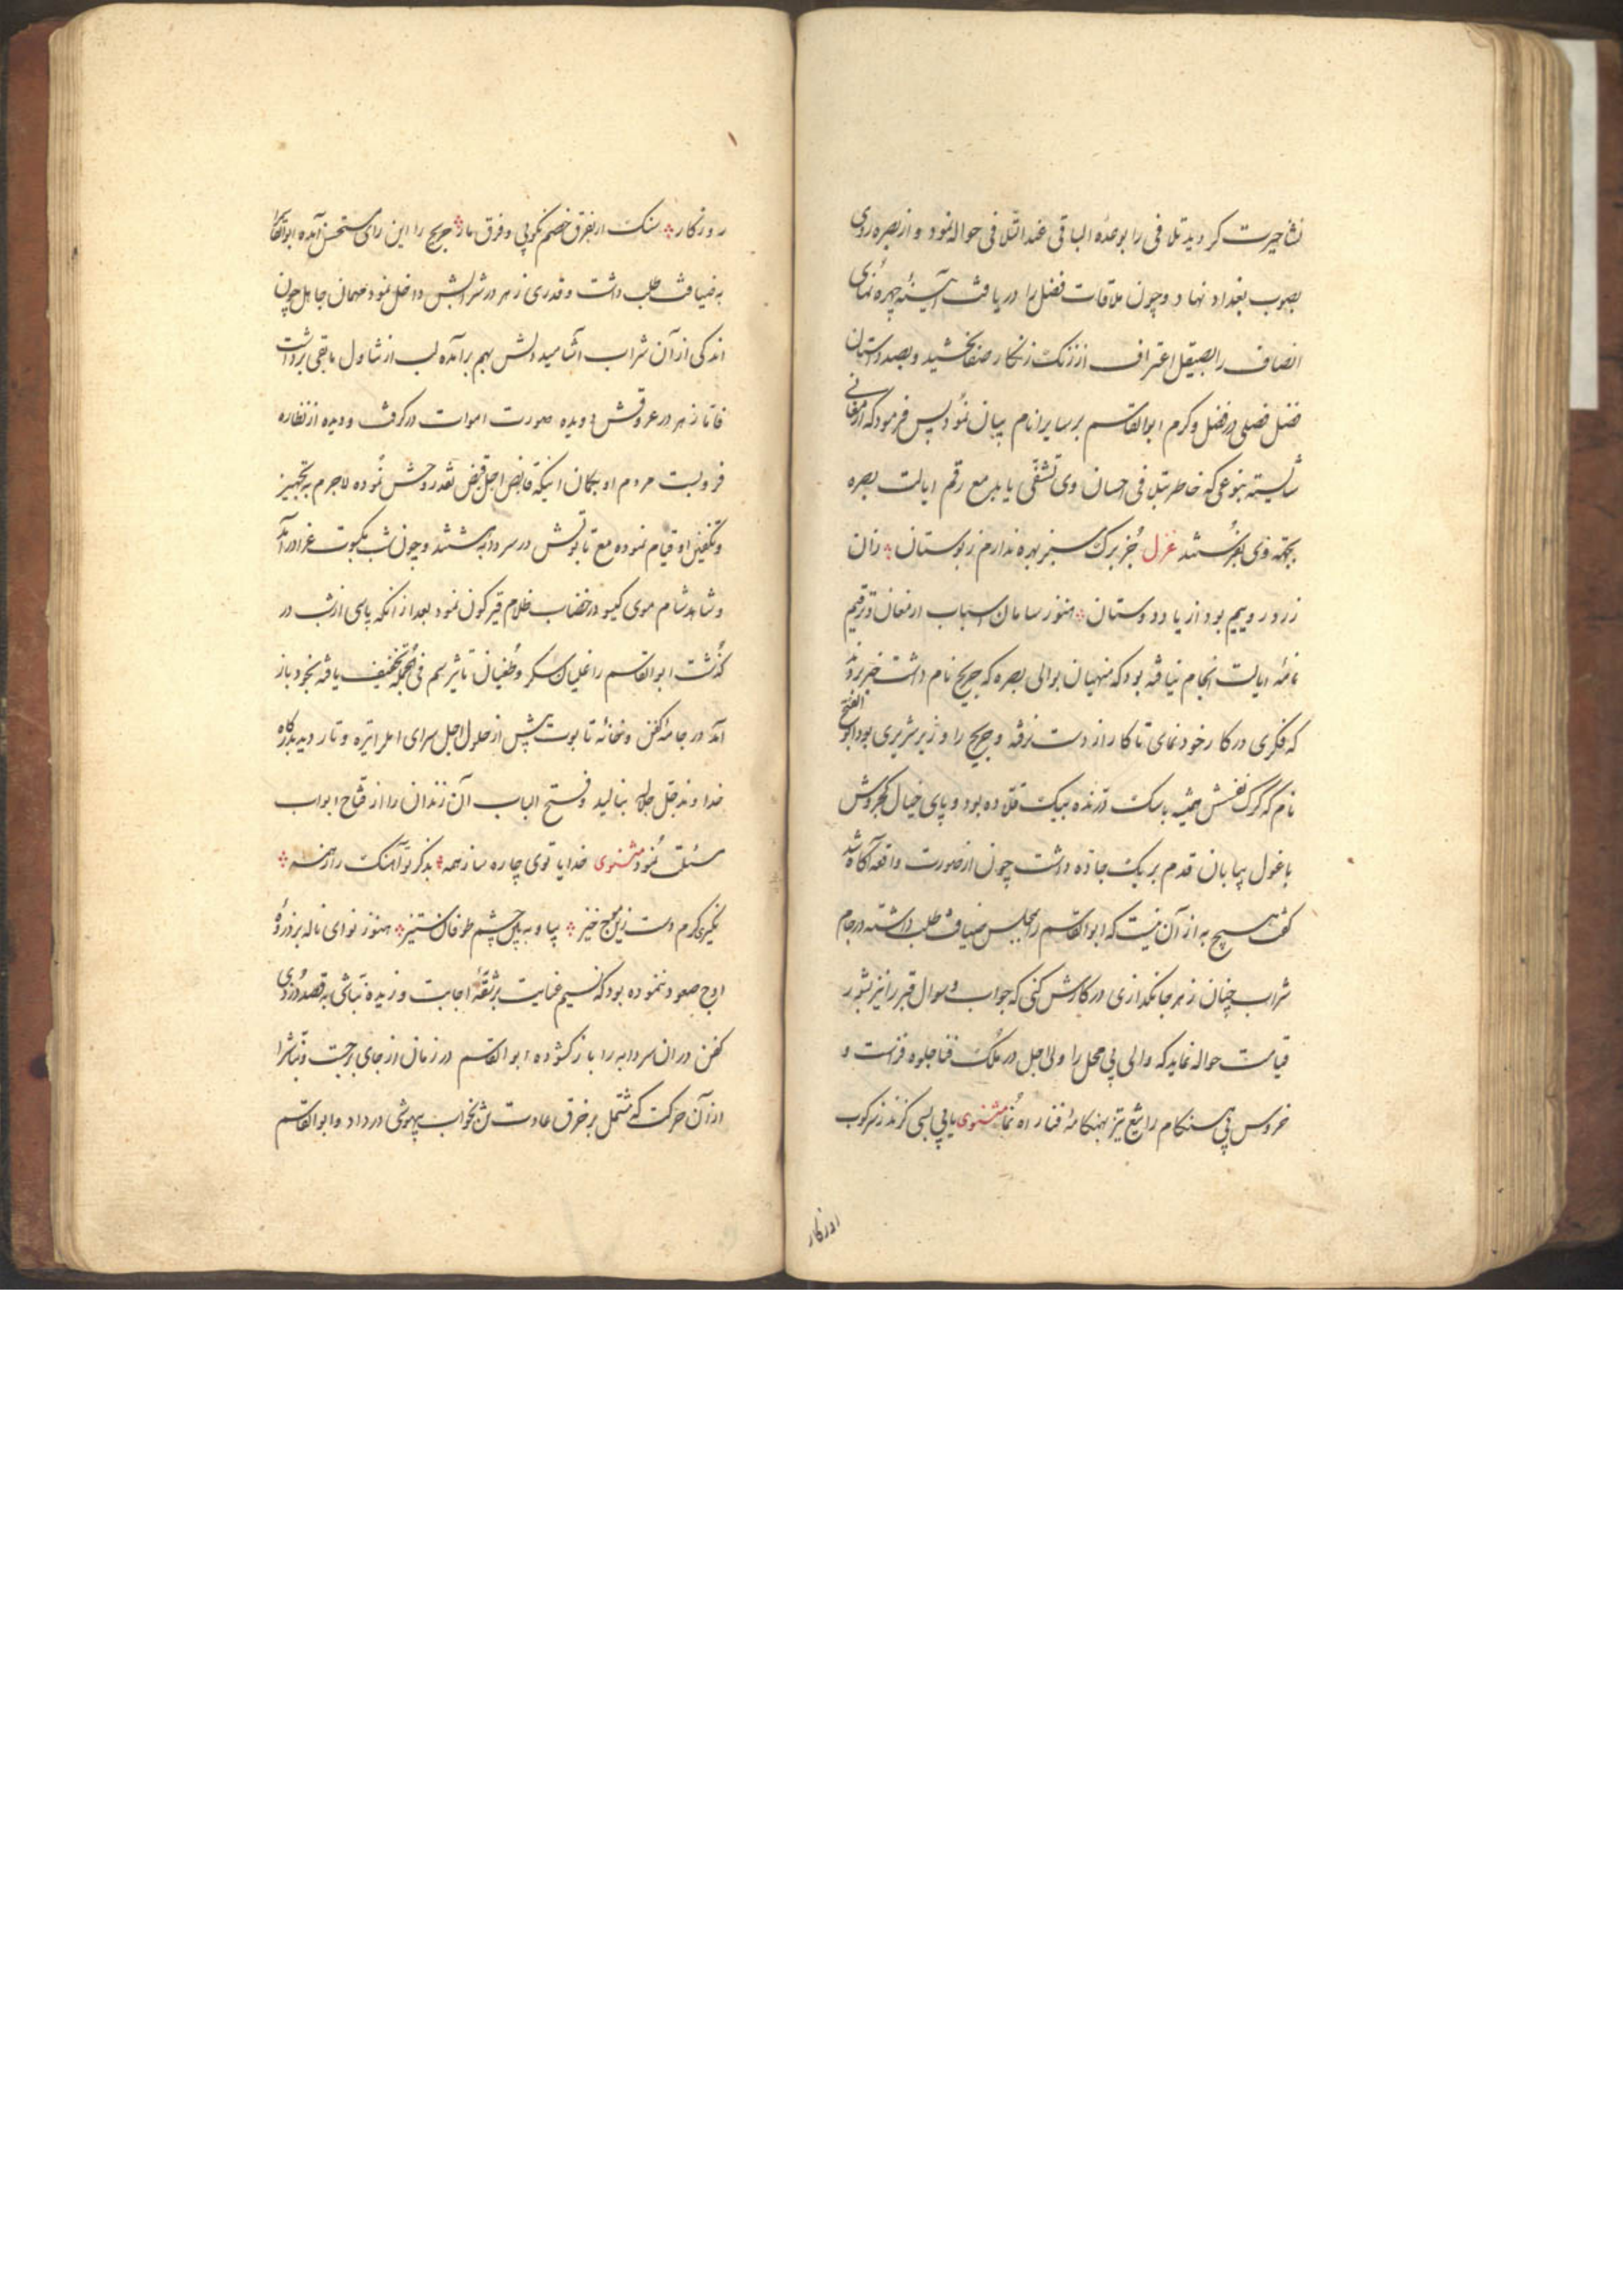 نشاء حیرت کردید تلافی را بوعده الباقی عند التلافی حواله نمود و از بصره روی
بصوب بغداد نهاد و چون ملاقات فضل را دریافت آیینه چهره نمای
انصاف را بصیقل اعتراف از زنک زنکار صفا بخشید و بصد داستان
فضل فصلی در فضل و کرم ابوالقاسم بر سایر انام بیان نمود پس فرمود که ارمغانی
شایسته بنوعی که خاطر بتلافی احسان وی تشفی یابد مع رقم ایالت بصره
بجهته وی بفرستند غزل جز برک سبز بهره ندارم ز بوستان زان
زرد روییم بود از یاد دوستان هنوز سامان اسباب ارمغان و ترقیم
نامه ایالت انجام نیافته بود که منهیان بوالی بصره که جریح نام داشت خبر بردند
که فکری در کار خود نمای تا کار از دست نرفته و جریح را وزیر شریری بود ابو الفتح
نام که کرک نفسش همیشه باسک درنده بیک قلاده بود و پای خیال کجروش
با غول بیابان قدم بر یک جاده داشت چون از صورت واقعه آکاه شد
کفت هیچ به از آن نیست که ابوالقاسم را بمجلس ضیافت طلب داشته در جام
شراب چنان زهر جانکدازی در کارش کنی که جواب و سوال قبر را نیز بشور
قیامت حواله نماید که والی بی محل را ولی اجل در ملک فنا جلوه فرماست و
خروس بی هنکام را تیغ تیز بهنکامه فنا راه نما مثنوی یا بی بسی کزند ز سرکوب
روزکار
روزکار سنک ار بفرق خصم نکوبی و فرق مار جریح را این رای مستحسن آمده ابوالقاسم را
به ضیافت طلب داشت و قدری زهر در شرابش داخل نمود مهمان جاهل چون
اندکی از آن شراب آشامید دلش بهم برآمده لب از تناول باقی برداشت
فاما زهر در عروقش دویده صورت اموات در کرفت و دیده از نظاره
فرو بست مردم او بکمان اینکه قابض اجل قبض نقد روحش نموده لاجرم به تجهیز
و تکفین او قیام نموده مع تابوتش در سردابه هشتند و چون شب بکسوت عزا درآمد
و شاهد شام موی کیسو در خضاب ظلام قیرکون نمود بعد از آنکه پاسی از شب در
کذشت ابوالقاسم را غلیان سکر و طغیان تاثیر سم فی الجمله تخفیف یافته بخود باز
آمد در جامه کفن و خانه تابوت پیش از حلول اجل سرای امل را تیره و تار دید بدرکاه
خداوند جل جلاله بنالید و فتح الباب آن زندان را از فتاح ابواب
مسئلت نمود مثنوی خدایا توی چاره ساز همه بذکر تو آهنک راز همه
بکیر از کرم دست زین موج خیز بیا و به بین چشم طوفان ستیز هنوز نوای ناله بر ذروه
اوج صعود ننموده بود که نسیم عنایت بر شقه اجابت وزیده نباشی به قصد دزدی
کفن در ان سردابه را باز کشوده ابوالقاسم در زمان از جای برجست و نباش را
از آن حرکت که مشتمل بر خرق عادت بخواب بیهوشی در داد و ابوالقاسم